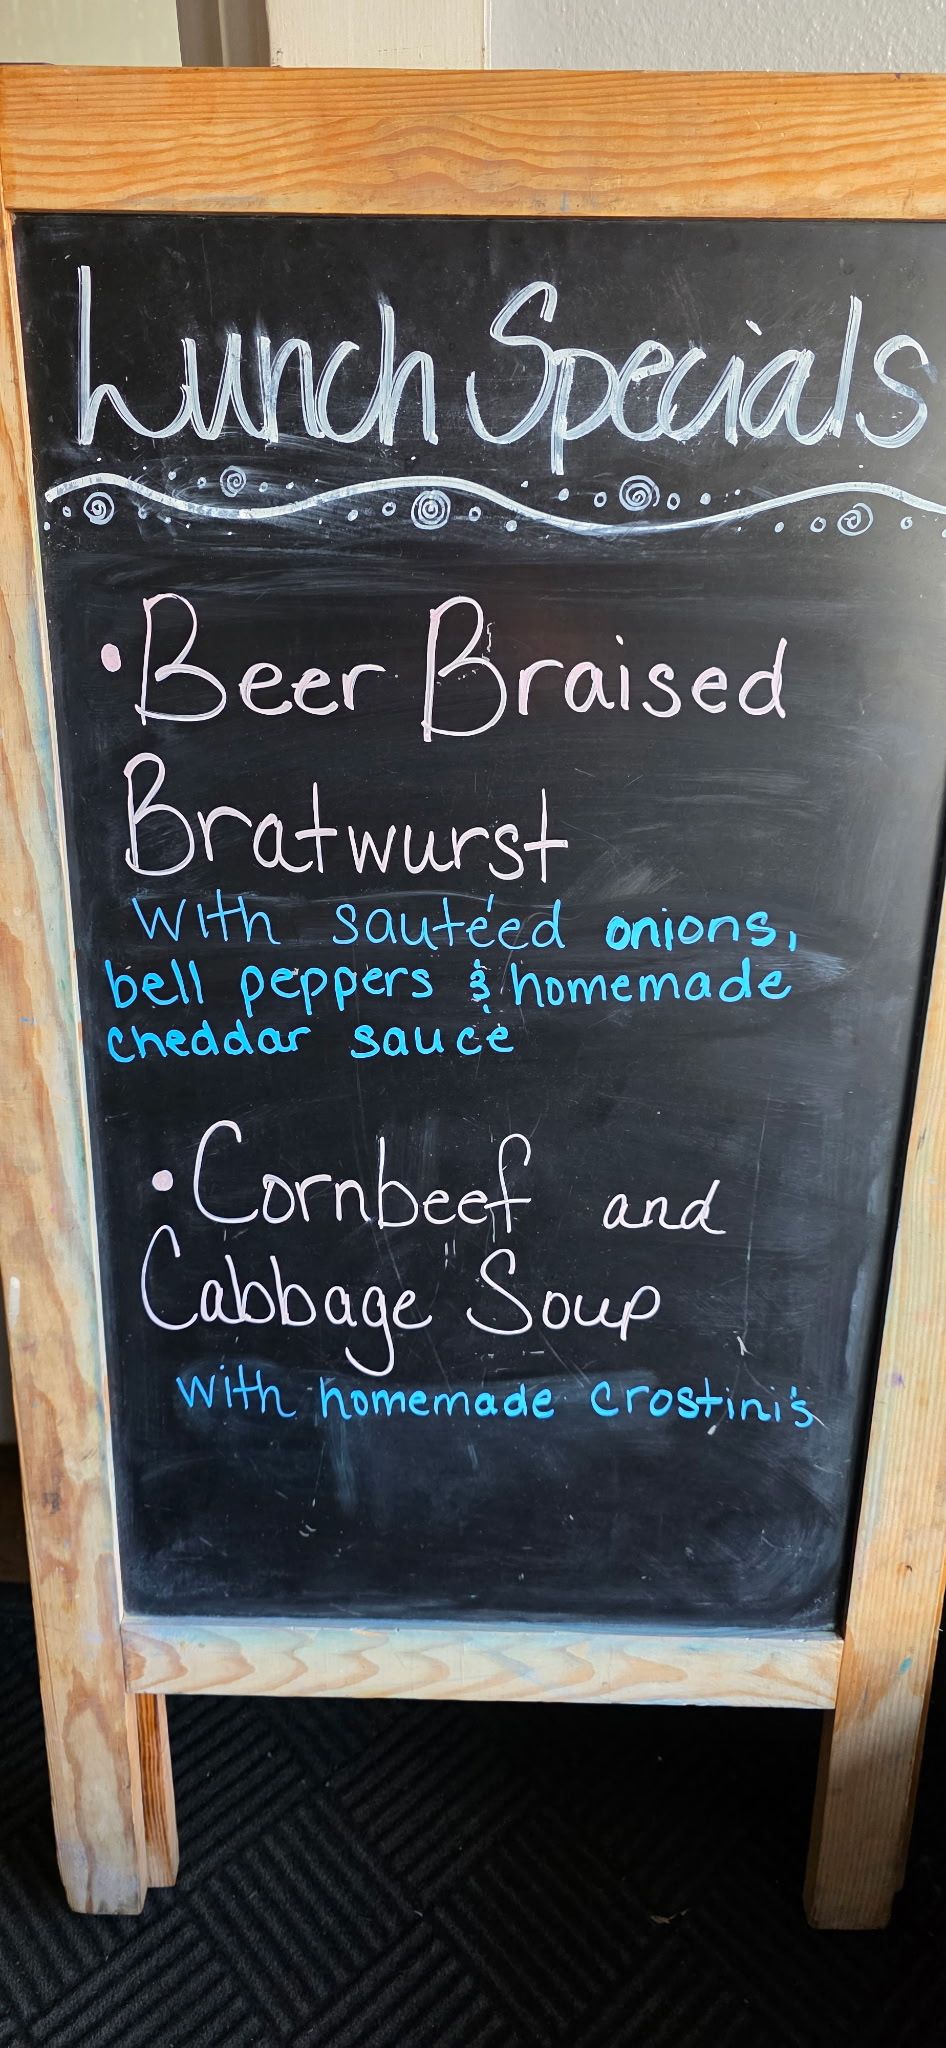 Lunch Specials
• Beer Braised
Bratwurst
With sautéed onions,
bell peppers & homemade
cheddar sauce
• Cornbeef and
Cabbage Soup
with homemade crostini's